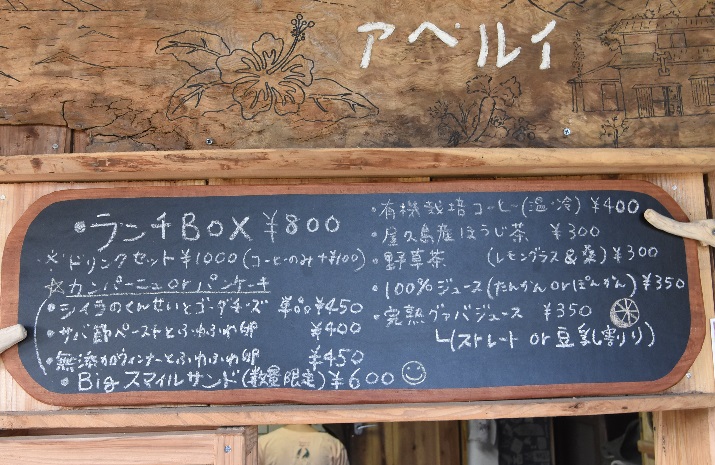 アペルイ
・ランチBOX ¥800
※ドリンクセット ¥1000 (コーヒーのみ+¥100)
☆カンパーニュorパンケーキ
・シイラのくんせいとゴーダチーズ ¥450
・サバ節ペーストとふわふわ卵 ¥400
・無添加ウィンナーとふわふわ卵 ¥450
・Bigスマイルサンド(数量限定) ¥600
・有機栽培コーヒー(温・冷) ¥400
・屋久島産ほうじ茶 ¥300
・野草茶 (レモングラス&桑) ¥300
・100%ジュース(たんかんorぽんかん) ¥350
・完熟グァバジュース ¥350
(ストレート or 豆乳割り)